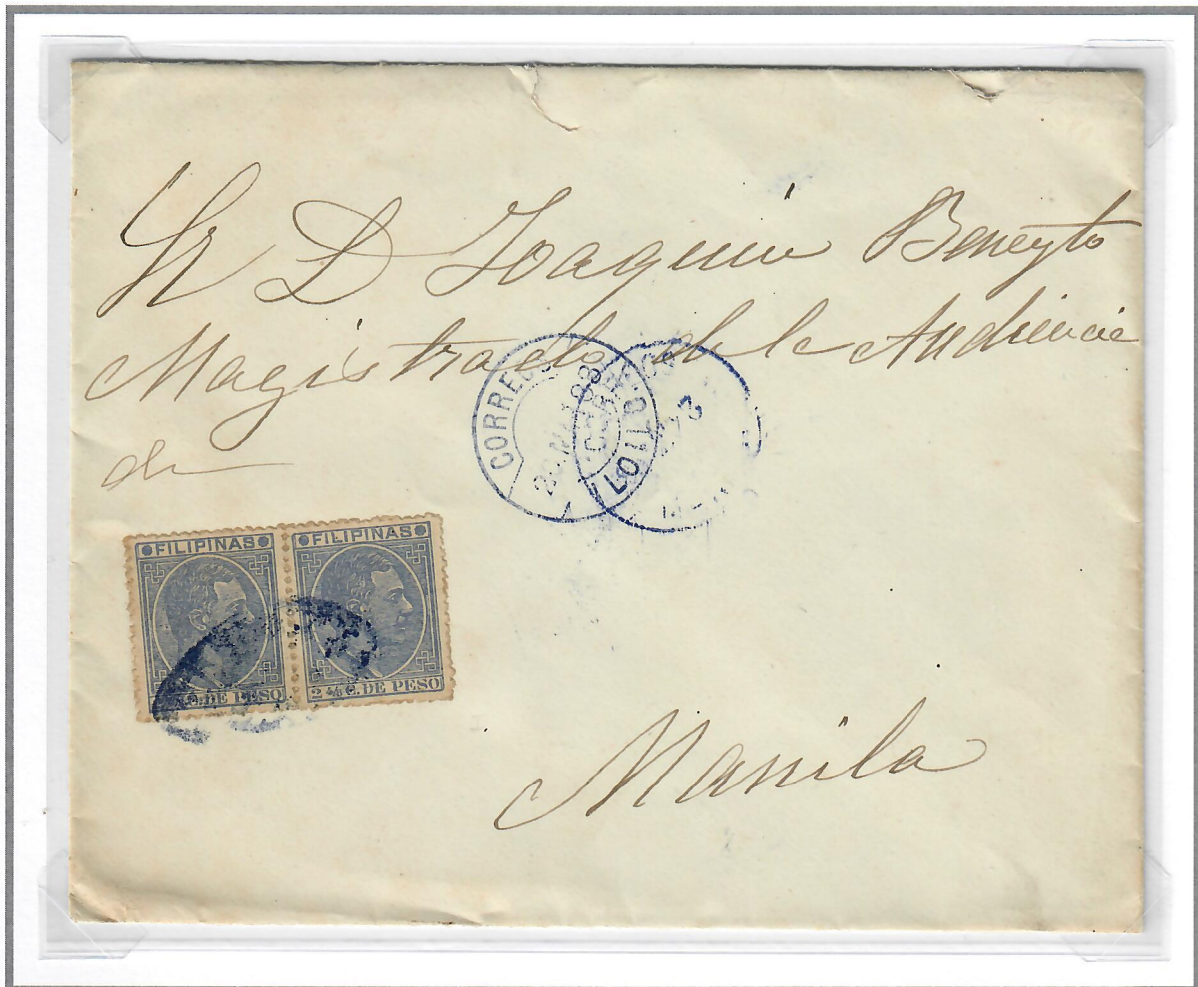 Sr D Joaquin Beneyto
Magistrado de la Audiencia
de
CORREOS
ILOILO
FILIPINAS FILIPINAS
C. DE PESO 2 4/8 C. DE PESO
Manila